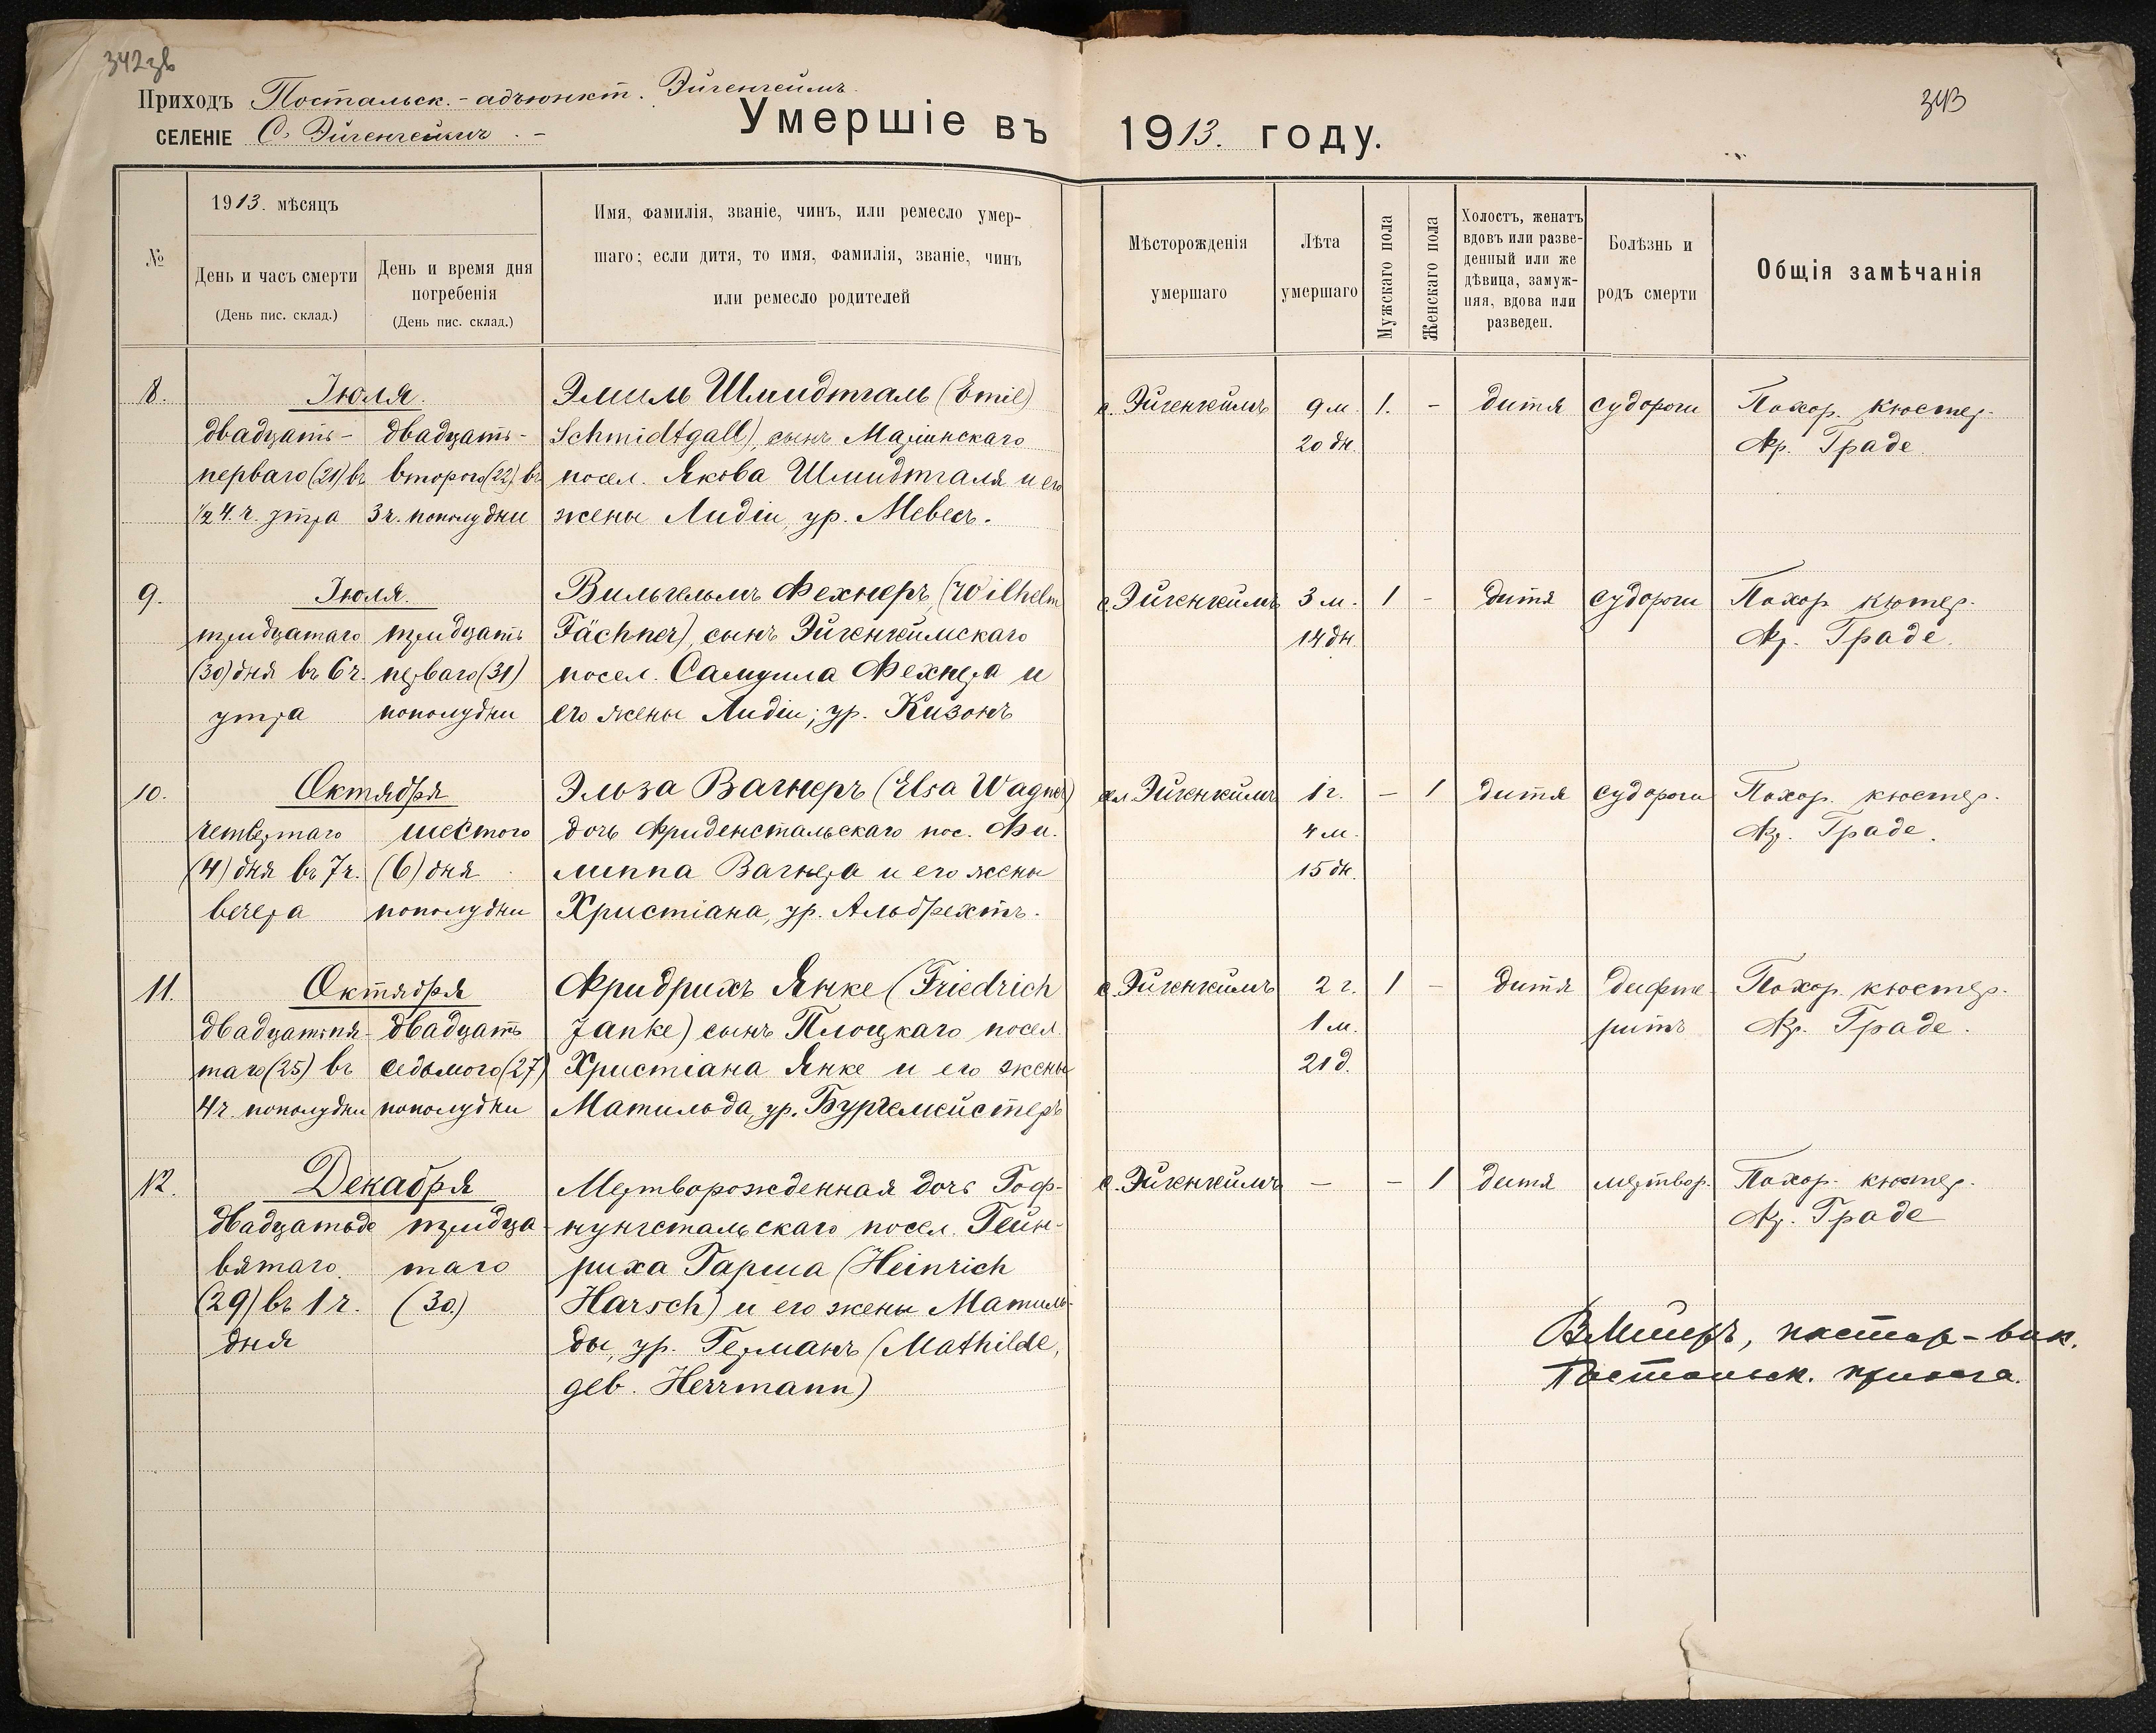 342зв
343
Приходъ Постальск.-адъюнкт. Эйгенгеймъ.
СЕЛЕНІЕ С. Эйгенгеймъ.-
Умершіе въ 1913. году.
№
1913. мѣсяцъ
День и часъ смерти
(День пис. склад.)
День и время дня
погребенія
(День пис. склад.)
Имя, фамилія, званіе, чинъ, или ремесло умер-
шаго; если дитя, то имя, фамилія, званіе, чинъ
или ремесло родителей
Мѣсторожденія
умершаго
Лѣта
умершаго
Мужскаго пола
Женскаго пола
Холостъ, женатъ
вдовъ или разве-
денный или же
дѣвица, замуж-
няя, вдова или
разведен.
Болѣзнь и
родъ смерти
Общія замѣчанія
8. Іюля. Эмиль Шмидтгаль (Emil) с. Эйгенгеймъ 9 м. 1. - дитя судороги Похор. кюстер.
двадцать- двадцать- Schmidtgall), сынъ Маріинскаго 20 дн. Фр. Граде.
перваго (21) въ второго (22) въ посел. Якова Шмидтгаля и его
1/2 4. ч. утра 3 ч. пополудни жены Лидіи, ур. Мевесъ.
9. Іюля. Вильгельмъ Фехнеръ, (Wilhelm с. Эйгенгеймъ 3 м. 1 - дитя судороги Похор. кюстер.
тридцатаго тридцать Fächner), сынъ Эйгенгеймскаго 14 дн. Фр. Граде.
(30) дня въ 6 ч. перваго (31) посел. Самуила Фехнера и
утра пополудни его жены Лидіи, ур. Кизонъ
10. Октября Эльза Вагнеръ (Elsa Wagner) с. Эйгенгеймъ 1 г. - 1 дитя судороги Похор. кюстер.
четвертаго шестого дочь Фриденстальскаго пос. Фи- 4 м. Фр. Граде.
(4) дня въ 7 ч. (6) дня липпа Вагнера и его жены 15 дн.
вечера пополудни Христіана, ур. Альбрехтъ.
11. Октября Фридрихъ Янке (Friedrich с. Эйгенгеймъ 2 г. 1 - дитя дифте- Похор. кюстер.
двадцатьпя- двадцать Janke) сынъ Плоцкаго посел. 1 м. ритъ Фр. Граде.
таго (25) въ седьмого (27) Христіана Янке и его жены 21 д.
4 ч. пополудни пополудни Матильда, ур. Бургемейстеръ
12. Декабря Мертворожденная дочь Гоф- с. Эйгенгеймъ - - 1 дитя мертвор. Похор. кюстер.
двадцатьде тридца- нунгстальскаго посел. Гейн- Фр. Граде
вятаго таго риха Гарша (Heinrich
(29) въ 1 ч. (30.) Harsch) и его жены Матиль-
дня ды, ур. Германъ (Mathilde,
geb. Herrmann)
пастор-вик.
Постальск. прихода.